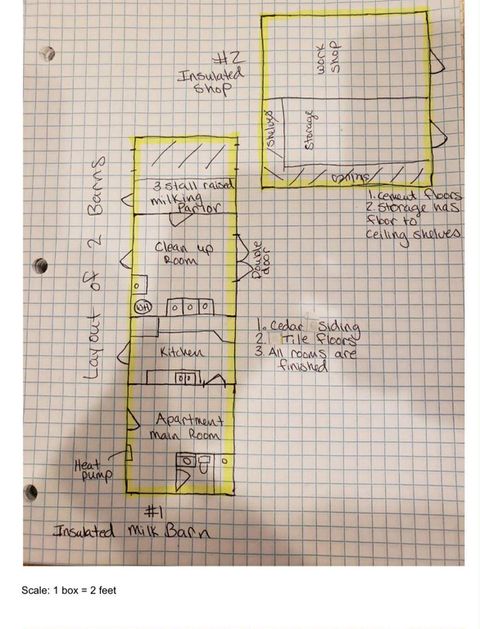 #2
Insulated
Shop
work
shop
Shelves
Storage
1. cement floors
2. Storage has
floor to
ceiling shelves
Layout of 2 Barns
3 stall raised
milking
Parlor
Clean up
Room
Double
door
WH
Kitchen
1. Cedar siding
2. Tile floors
3. All rooms are
finished
Apartment
main Room
Heat
pump
#1
Insulated milk Barn
Scale: 1 box = 2 feet